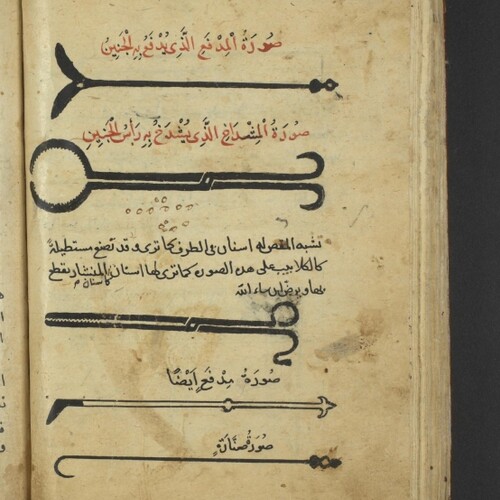 صورة المدفع الذي يدفع به الجنين
صورة المشداخ الذي يشدخ به رأس الجنين
تشبه المقص له اسنان في الطرف كما ترى وقد تصنع مستطيلة
كالكلاليب على هذه الصورة كما ترى لها اسنان كاسنان المنشار يقطع
بها ويرض ان شاء الله
صورة مدفع ايضا
صورة صنارة